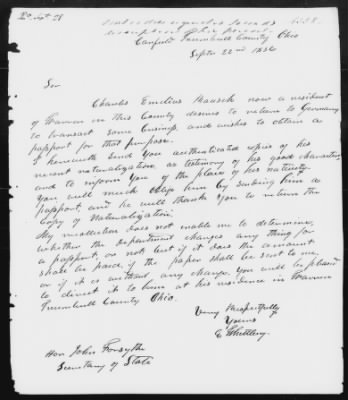 Canfield Trumbull County Ohio
Septr 22nd 1836
Sir
Charles Emilius Rausch now a resident
of Warren in this County desires to return to Germany
to transact some business and wishes to obtain a
passport for that purpose.
I herewith send you authenticated copies of his
recent naturalization, as testimony of his good character,
and to inform you of the place of his nativity
You will much oblige him by sending him a
passport, and he will thank you to return the
Copy of Naturalization.
My recollection does not enable me to determine,
whether the Department charges any thing for
a passport, or not but if it does the amount
shall be paid if the paper shall be sent to me,
or if it is without any charge You will be pleased
to direct it to him at his residence in Warren
Trumbull County Ohio.
Very Respectfully
Yours
E Whittlesy
Hon John Forsythe
Secretary of State